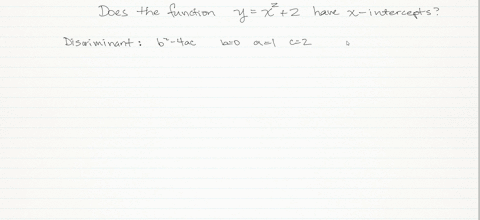 Does the function y = x² + 2 have x-intercepts?
Discriminant: b²-4ac b=0 a=1 c=2